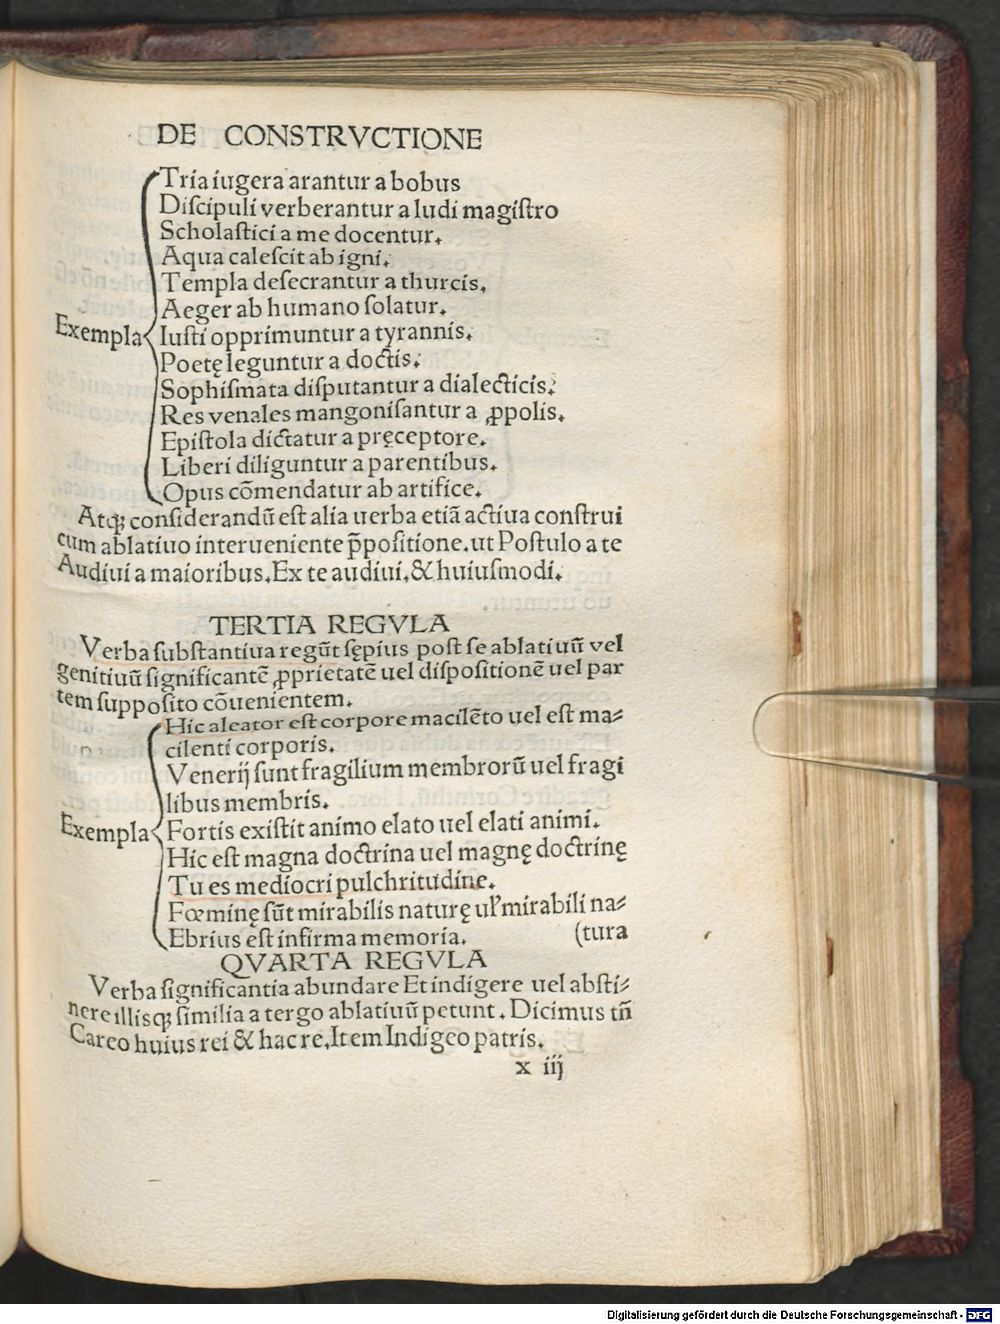 DE CONSTRVCTIONE
Tria iugera arantur a bobus
Diſcipuli verberantur a ludi magiſtro
Scholaſtici a me docentur.
Aqua caleſcit ab igni.
Templa deſecrantur a thurcis.
Aeger ab humano ſolatur.
Exempla Iuſti opprimuntur a tyrannis.
Poetę leguntur a doctis.
Sophiſmata diſputantur a dialecticis.
Res venales mangoniſantur a ꝓpolis.
Epiſtola dictatur a pręceptore.
Liberi diliguntur a parentibus.
Opus cōmendatur ab artifice.
Atqꝫ conſiderandū eſt alia uerba etiā actiua conſtrui
cum ablatiuo interueniente p̄poſitione. ut Poſtulo a te
Audiui a maioribus. Ex te audiui. & huiuſmodi.
TERTIA REGVLA
Verba ſubſtantiua regūt ſępius poſt ſe ablatiuū vel
genitiuū ſignificantē ꝓprietatē uel diſpoſitionē uel par
tem ſuppoſito cōuenientem.
Hic aleator eſt corpore macilēto uel eſt ma⸗
cilenti corporis.
Venerij ſunt fragilium membrorū uel fragi
libus membris.
Exempla Fortis exiſtit animo elato uel elati animi.
Hic eſt magna doctrina uel magnę doctrinę
Tu es mediocri pulchritudine.
Fœminę ſūt mirabilis naturę uł mirabili na⸗
Ebrius eſt infirma memoria. (tura
QVARTA REGVLA
Verba ſignificantia abundare Et indigere uel abſti⸗
nere illisqꝫ ſimilia a tergo ablatiuū petunt. Dicimus tn̄
Careo huius rei & hac re. Item Indigeo patris.
x iij
Digitalisierung gefördert durch die Deutsche Forschungsgemeinschaft - DFG